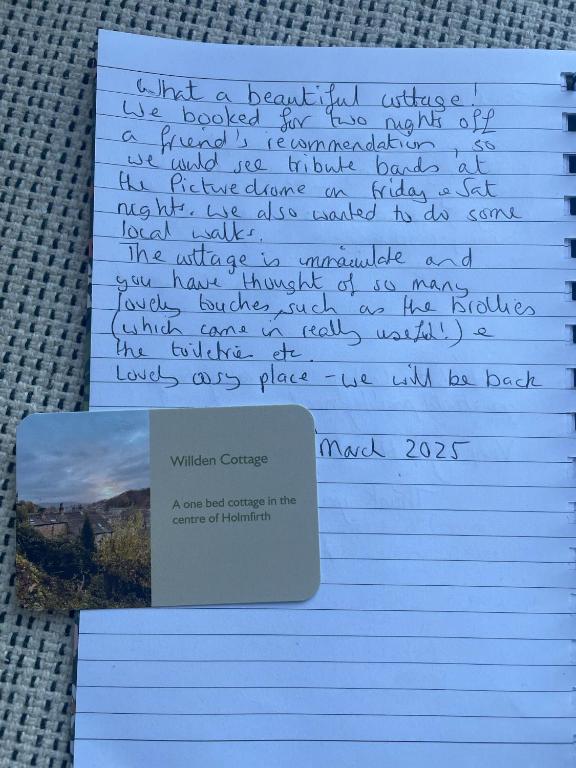 What a beautiful cottage!
We booked for two nights off
a friend's recommendation, so
we could see tribute bands at
the Picturedrome on Friday & Sat
nights. We also wanted to do some
local walks.
The cottage is immaculate and
you have thought of so many
lovely touches, such as the brollies
(which came in really useful!) &
the toiletries etc.
Lovely cosy place - we will be back
March 2025
Willden Cottage
A one bed cottage in the
centre of Holmfirth